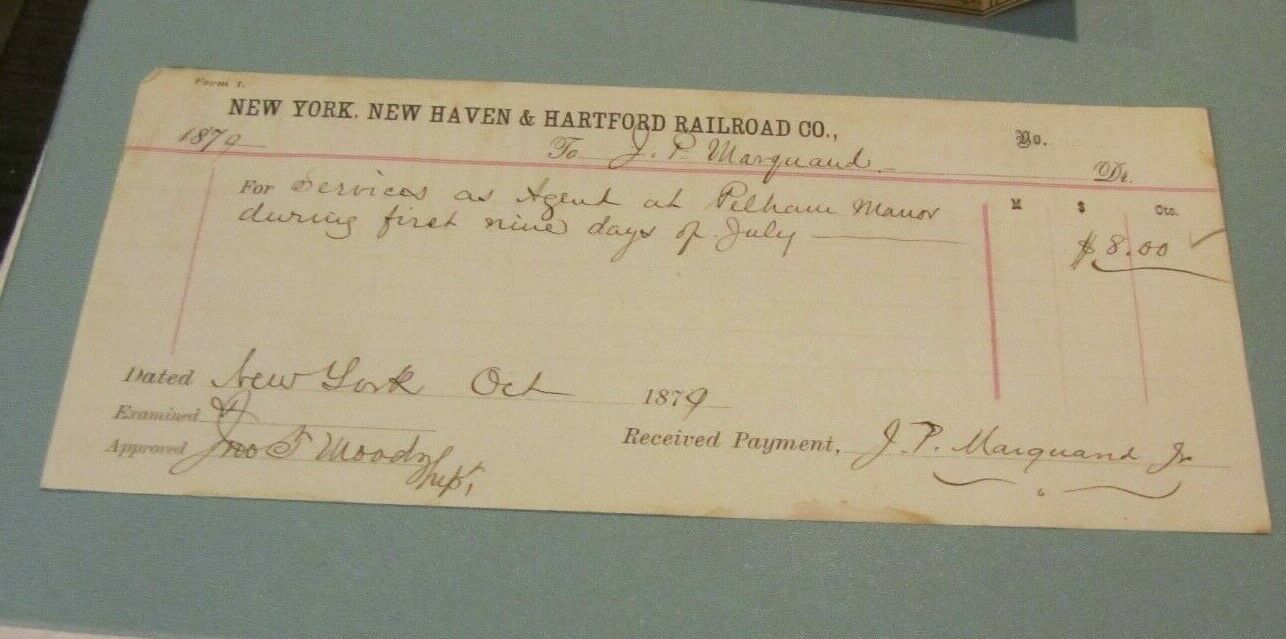 Form 1.
NEW YORK, NEW HAVEN & HARTFORD RAILROAD CO.,
No.
1879 To J. P. Marquand Dr.
M $ Cts.
For Services as Agent at Pelham Manor
during first nine days of July $8.00
Dated New York Oct 1879
Examined
Approved Jno T Moody Supt,
Received Payment, J. P. Marquand Jr